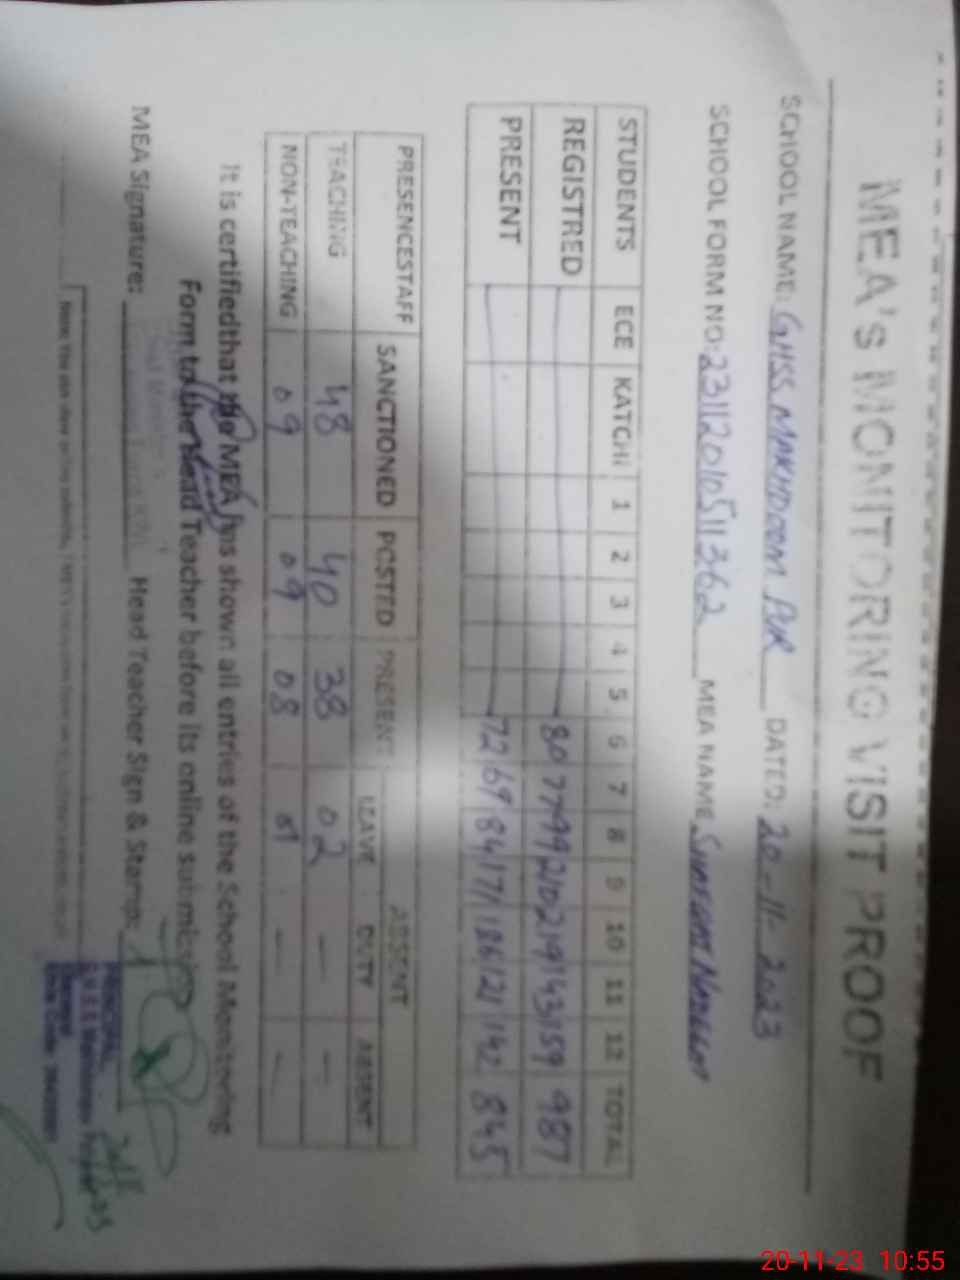 MEA's MONITORING VISIT PROOF
SCHOOL NAME: GHSS MAKHDOOM PUR DATED: 20-11-2023
SCHOOL FORM NO: 23112010511362 MEA NAME
STUDENTS ECE KATCHI 1 2 3 4 5 6 7 8 9 10 11 12 TOTAL
REGISTRED 80 77 99 210 219 143 159 987
PRESENT 72 69 84 171 186 121 142 845
PRESENCESTAFF SANCTIONED POSTED PRESENT ABSENT
LEAVE DUTY ABSENT
TEACHING 48 40 38 02 — —
NON-TEACHING 09 09 08 01 — —
It is certifiedthat the MEA has shown all entries of the School Monitoring
Form to the Head Teacher before its online submission
MEA Signature: Head Teacher Sign & Stamp:
PRINCIPAL
20-11-23 10:55